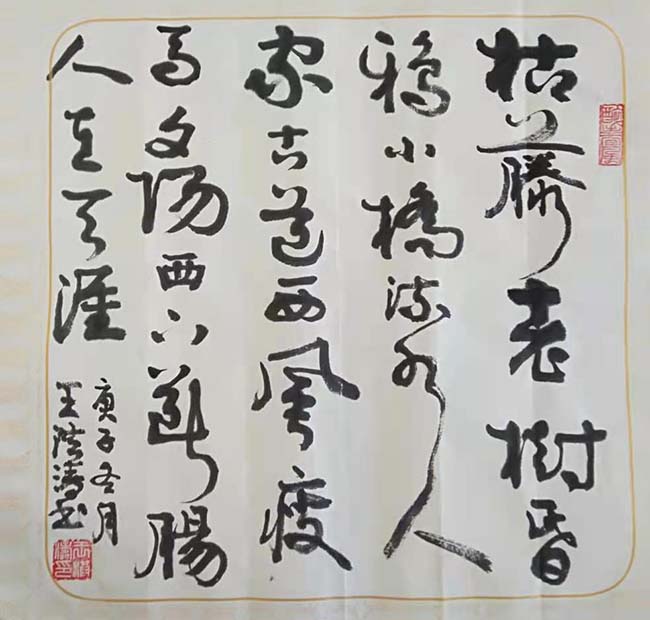 枯藤老樹昏
鴉小橋流水人
家古道西風瘦
馬夕陽西下斷腸
人在天涯
庚子冬月
王洪濤书